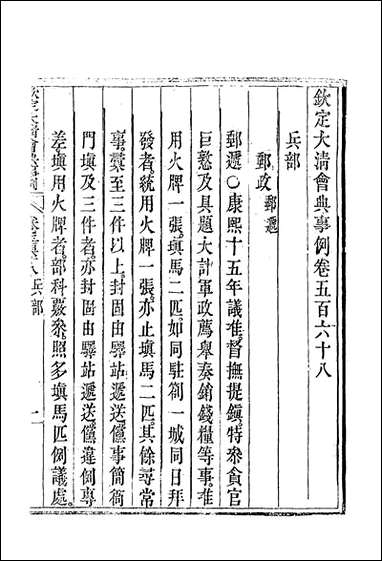 欽定大清會典事例卷五百六十八
兵部
郵政郵遞
郵遞○康熙十五年議准督撫提鎮特參貪官
巨憝及具題大計軍政薦舉奏銷錢糧等事准
用火牌一張填馬二匹如同駐劄一城同日拜
發者統用火牌一張亦止填馬二匹其餘尋常
事彙至三件以上封固由驛站遞送儻事簡衙
門填及三件者亦封固由驛站遞送儻違例專
差填用火牌者部科察參照多填馬匹例議處
欽定大清會典事例 兵部 一